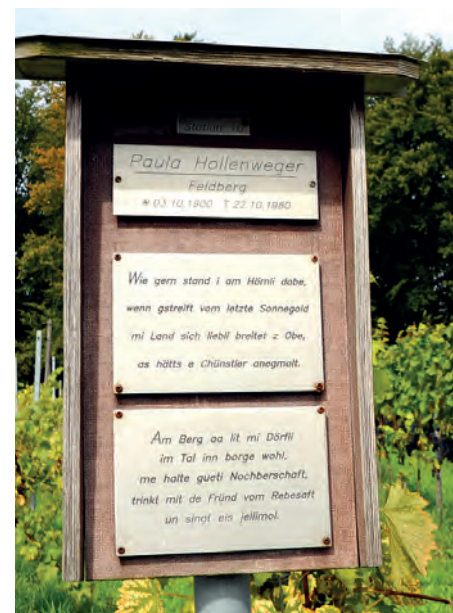 Station 10
Paula Hollenweger
Feldberg
* 03.10.1900 † 22.10.1980
Wie gern stand i am Hörnli dobe,
wenn gstreift vom letzte Sonnegold
mi Land sich liebli breitet z Obe,
as hätts e Chünstler anegmolt.
Am Berg aa lit mi Dörfli
im Tal inn borge wohl,
me halte gueti Nochberschaft,
trinkt mit de Fründ vom Rebesaft
un singt eis jellimol.